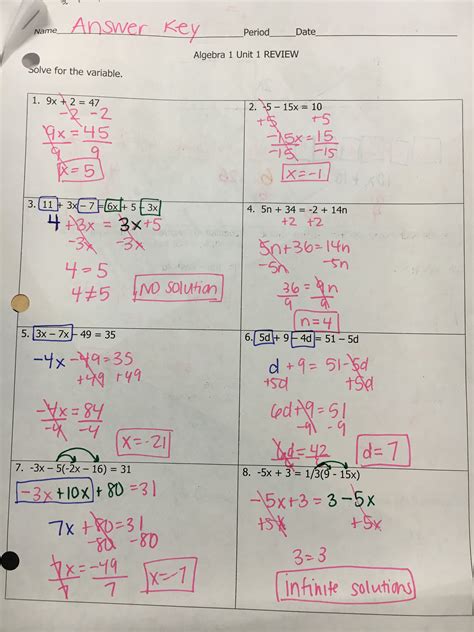 Name Answer Key Period Date
Algebra 1 Unit 1 REVIEW
Solve for the variable.
1. 9x + 2 = 47
-2 -2
9x = 45
9 9
x = 5
2. -5 – 15x = 10
+5 +5
-15x = 15
-15 -15
x = -1
3. 11 + 3x – 7 = 6x + 5 – 3x
4 + 3x = 3x + 5
-3x -3x
4 = 5
4 ≠ 5
No solution
4. 5n + 34 = -2 + 14n
+2 +2
5n + 36 = 14n
-5n -5n
36 = 9n
9 9
n = 4
5. 3x – 7x – 49 = 35
-4x - 49 = 35
+49 +49
-4x = 84
-4 -4
x = -21
6. 5d + 9 – 4d = 51 – 5d
d + 9 = 51 - 5d
+5d +5d
6d + 9 = 51
-9 -9
6d = 42
d = 7
7. -3x – 5(-2x – 16) = 31
-3x + 10x + 80 = 31
7x + 80 = 31
-80 -80
7x = -49
7 7
x = -7
8. -5x + 3 = 1/3(9 - 15x)
-5x + 3 = 3 - 5x
+5x +5x
3 = 3
infinite solutions